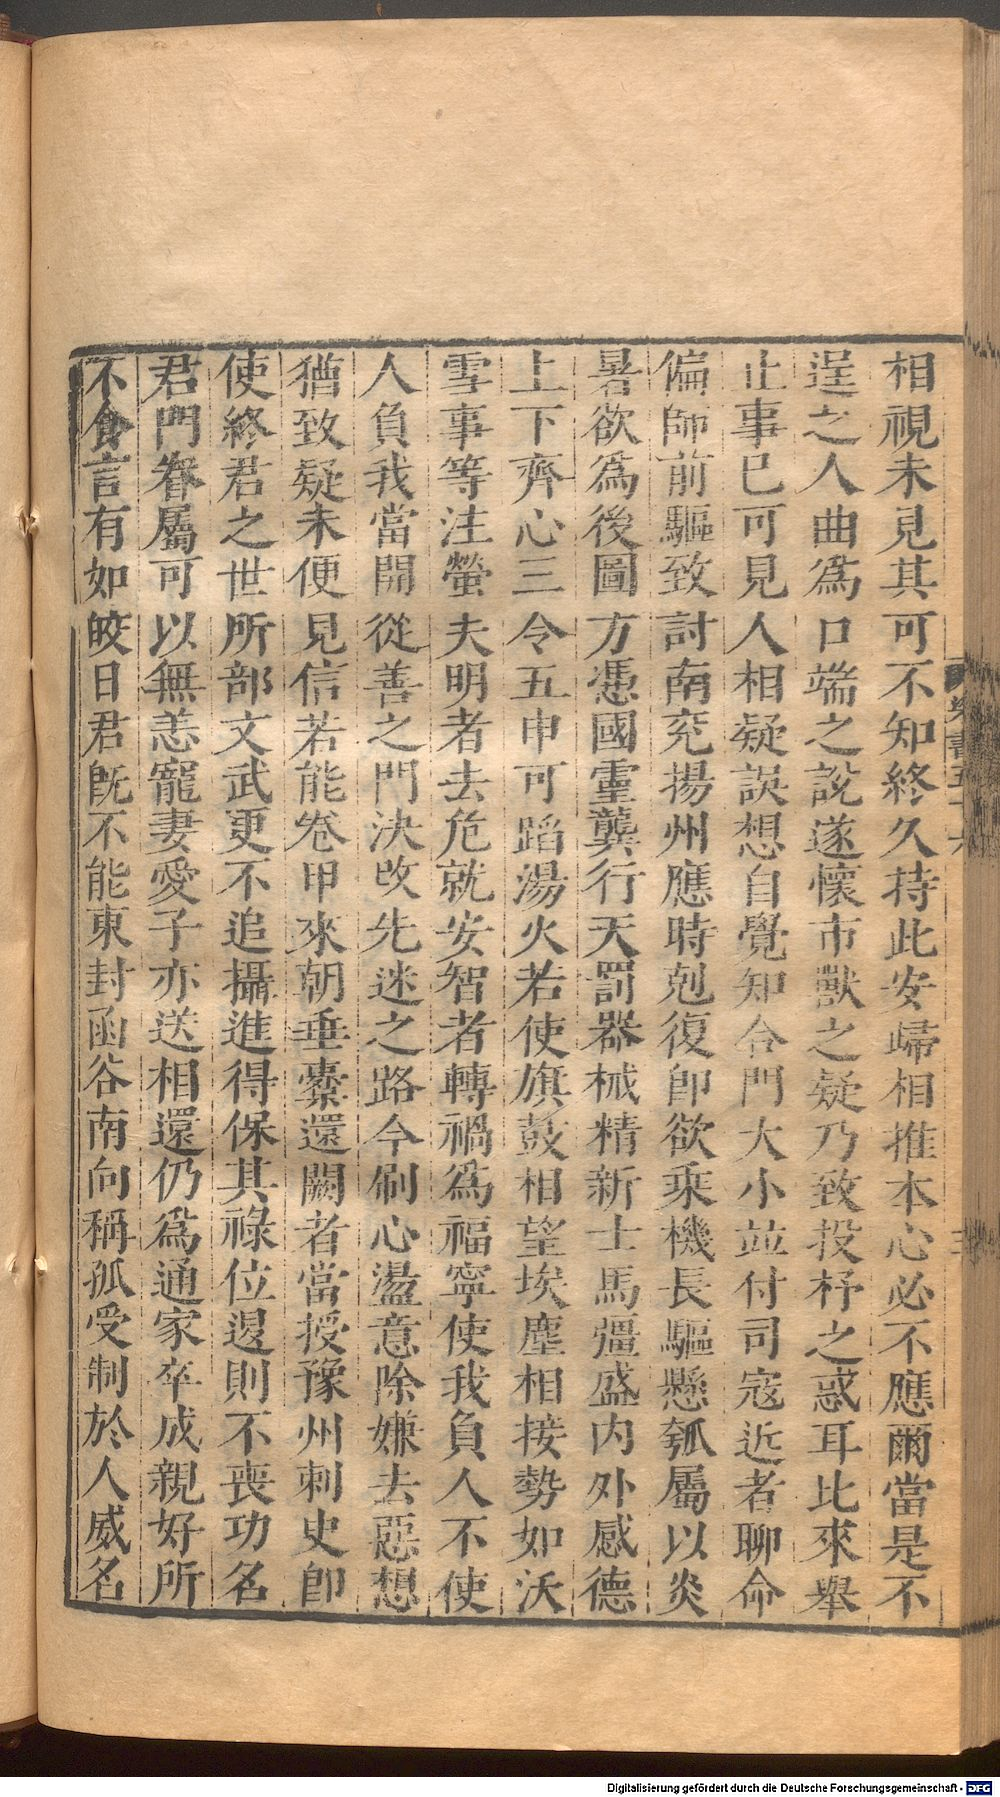 相視未見其可不知終久持此安歸相推本心必不應爾當是不
逞之人曲為口端之說遂懷市獸之疑乃致投杼之惑耳比來舉
止事已可見人相疑誤想自覺知合門大小並付司寇近者聊命
偏師前驅致討南兗揚州應時剋復即欲乘機長驅懸瓠屬以炎
暑欲為後圖方憑國靈龔行天罰器械精新士馬彊盛內外感德
上下齊心三令五申可蹈湯火若使旗鼓相望埃塵相接勢如沃
雪事等注螢夫明者去危就安智者轉禍為福寧使我負人不使
人負我當開從善之門決改先迷之路今刷心盪意除嫌去惡想
猶致疑未便見信若能卷甲來朝垂櫜還闕者當授豫州刺史即
使終君之世所部文武更不追攝進得保其祿位退則不喪功名
君門眷屬可以無恙寵妻愛子亦送相還仍為通家卒成親好所
不食言有如皎日君旣不能東封函谷南向稱孤受制於人威名
梁書五十六
Digitalisierung gefördert durch die Deutsche Forschungsgemeinschaft - DFG